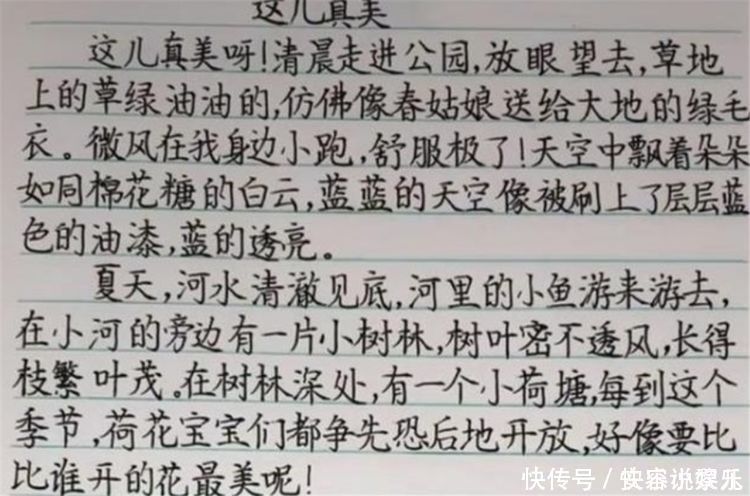 这儿真美
这儿真美呀!清晨走进公园,放眼望去,草地
上的草绿油油的,仿佛像春姑娘送给大地的绿毛
衣。微风在我身边小跑,舒服极了!天空中飘着朵朵
如同棉花糖的白云,蓝蓝的天空像被刷上了层层蓝
色的油漆,蓝的透亮。
夏天,河水清澈见底,河里的小鱼游来游去,
在小河的旁边有一片小树林,树叶密不透风,长得
枝繁叶茂。在树林深处,有一个小荷塘,每到这个
季节,荷花宝宝们都争先恐后地开放,好像要比
比谁开的花最美呢!
快传号/